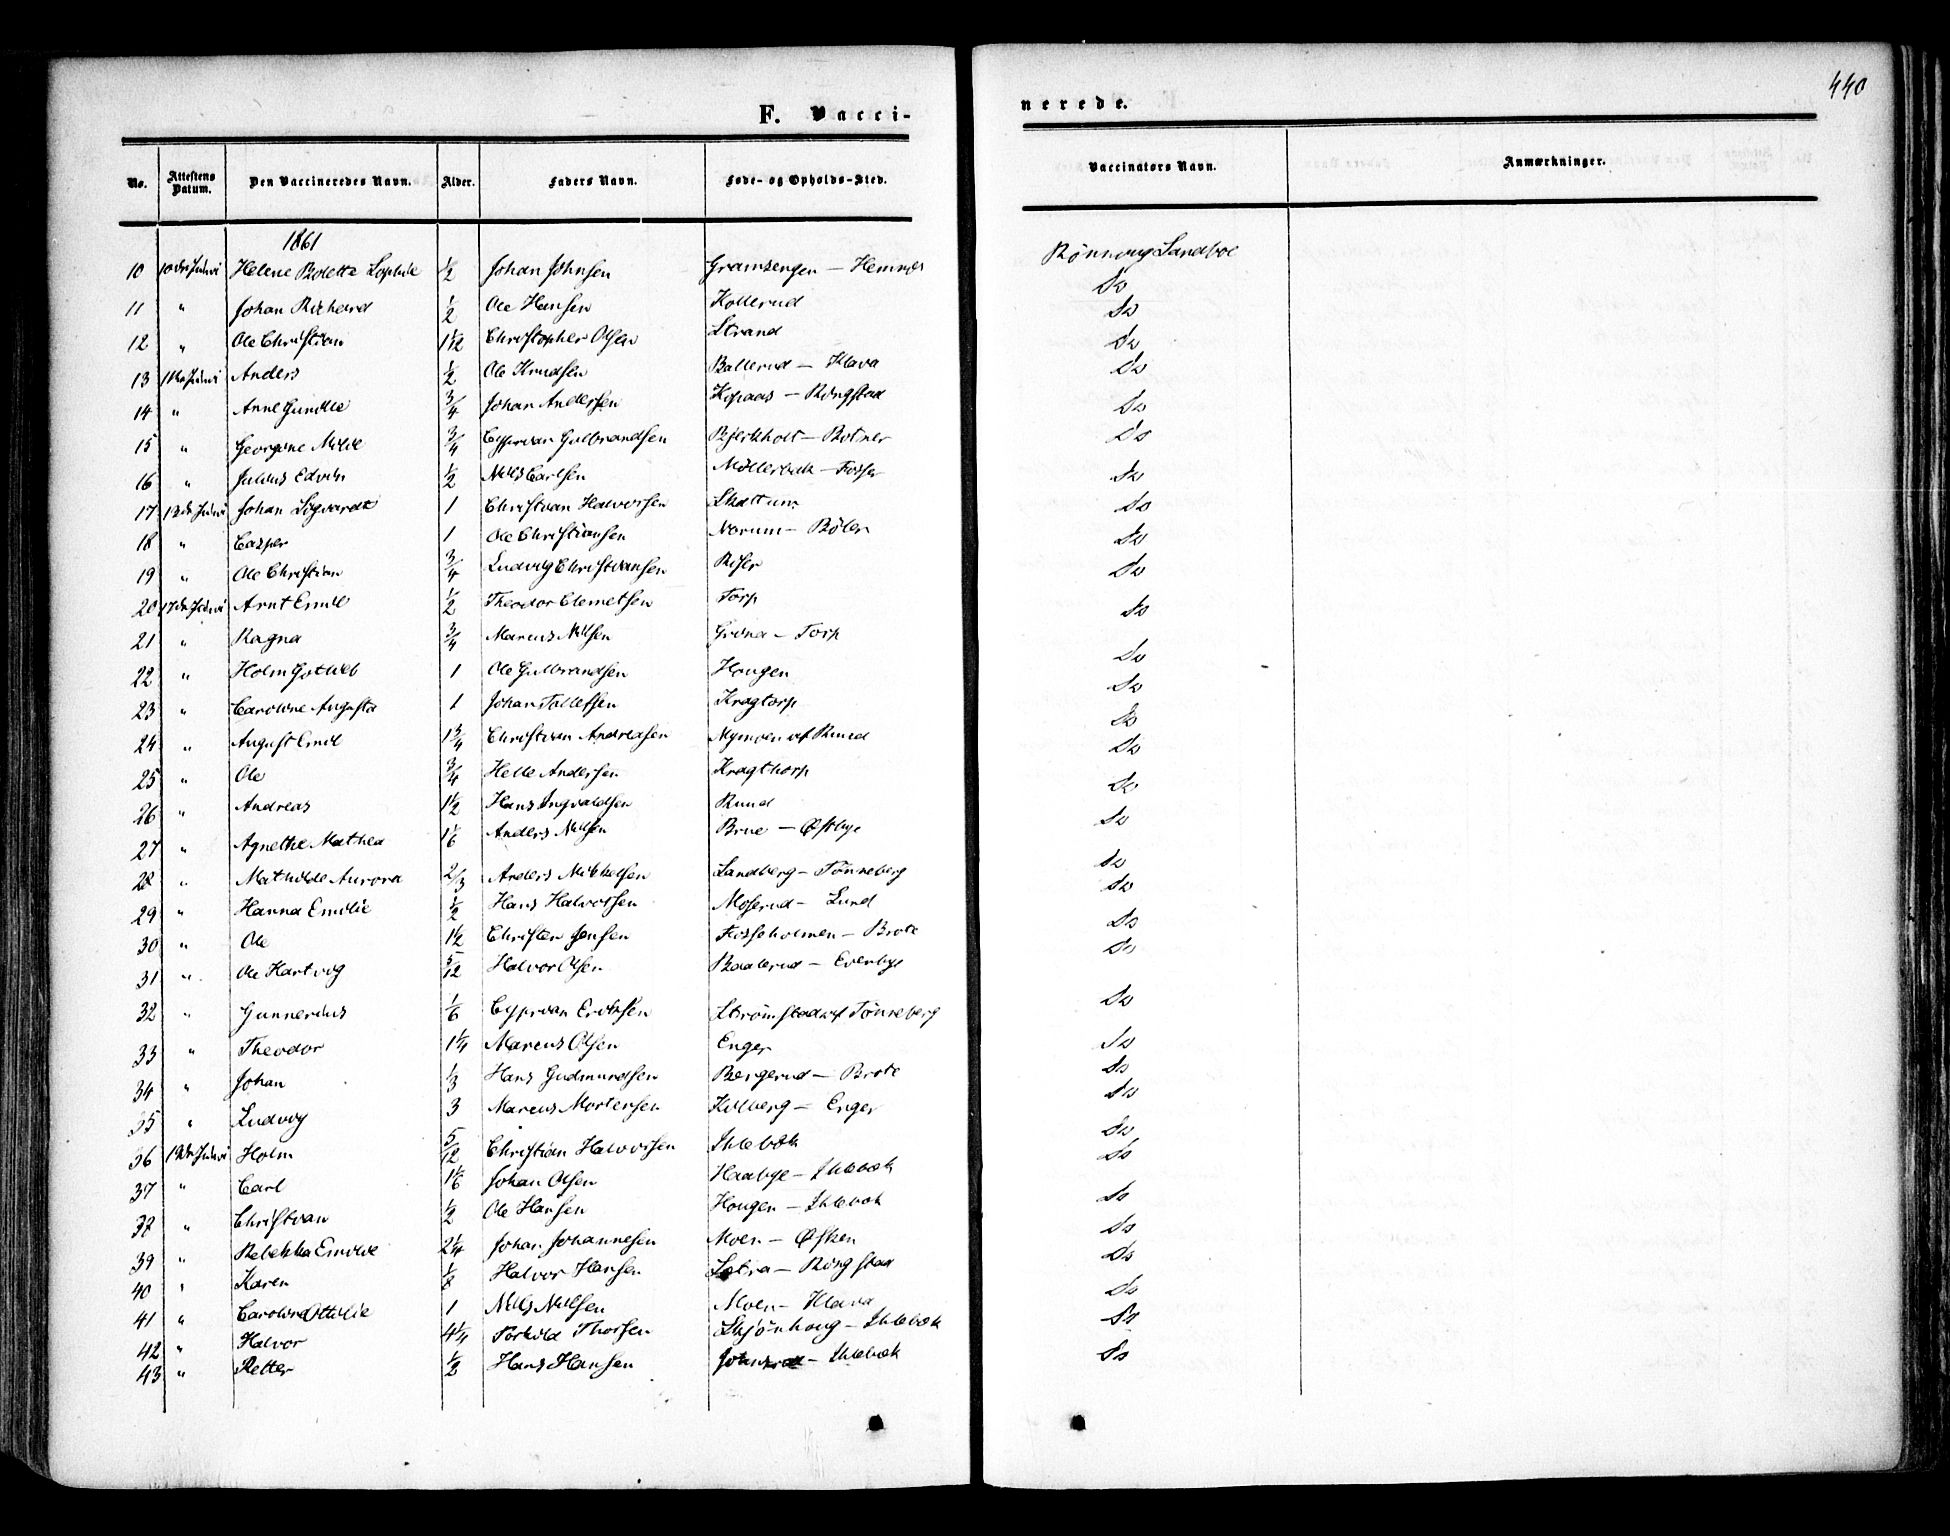 440
F. Vacci-
nerede.
No. Attestens Datum. Den Vaccineredes Navn. Alder. Faders Navn. Føde- og Opholds-Sted. Vaccinators Navn. Anmærkninger.
1861
10 10de Juni Helene Bolette Sophie 1/2 Johan Johnsen Gramsengen — Hemnæs Rönnaug Sandboe
11 " Johan Richard 1/2 Ole Hansen Kollerud Do
12 " Ole Christian 1 1/2 Christopher Olsen Strand Do
13 11te Juni Anders 1/2 Ole Knudsen Ballerud — Klava Do
14 " Anne Gunilde 3/4 Johan Andersen Kopaas — Ringstad Do
15 " Georgine Milie 3/4 Cyprian Gulbrandsen Bjerkholt — Botner Do
16 " Julius Edvin 1/2 Nils Carlsen Möllerbæk — Fosser Do
17 12de Juni Johan Sigvardt 1 Christian Halvorsen Skattum Do
18 " Casper 1 Ole Christiansen Norum — Böler Do
19 " Ole Christian 3/4 Ludvig Christiansen Riser Do
20 17de Juni Arnt Emil 1/2 Theodor Clemetsen Torp Do
21 " Ragna 3/4 Marcus Nilsen Grina — Torp Do
22 " Holm Gotlieb 1 Ole Gulbrandsen Hougen Do
23 " Caroline Augusta 1 Johan Tollefsen Kragtorp Do
24 " August Emil 1 3/4 Christian Andreasen Nymoen u/ Ruud Do
25 " Ole 3/4 Helle Andersen Kragthorp Do
26 " Andreas 1 1/2 Hans Ingvaldsen Ruud Do
27 " Agnethe Mathea 1 1/6 Anders Nilsen Brue — Østbye Do
28 " Mathilde Aurora 2/3 Anders Mikkelsen Sandberg — Tönneberg Do
29 " Hanna Emilie 1/2 Hans Halvorsen Moserud — Lund Do
30 " Ole 1 1/2 Christen Jensen Fosseholmen — Brote Do
31 " Ole Hartvig 5/12 Halvor Olsen Baalerud — Evenbye Do
32 " Gunnerius 1/6 Cyprian Eriksen Strömstad u/ Tönneberg Do
33 " Theodor 1 1/4 Marcus Olsen Enger Do
34 " Johan 1/3 Hans Gudmundsen Bergerud — Brote Do
35 " Ludvig 3 Marcus Mortensen Holberg — Enger Do
36 19de Juni Holm 5/12 Christian Halvorsen Ihlebæk Do
37 " Carl 1 1/6 Johan Olsen Haabye — Ihlebæk Do
38 " Christian 1/2 Ole Hansen Hougen — Ihlebæk Do
39 " Rebekka Emilie 2 1/4 Johan Johannesen Moen — Øsken Do
40 " Karen 1/2 Halvor Hansen Sætra — Ringstad Do
41 " Caroline Ottilie 1 Nils Nilsen Moen — Klava Do
42 " Halvor 4 1/4 Torkild Thorsen Skjönhoug — Ihlebæk Do
43 " Petter 1/2 Hans Hansen — Ihlebæk Do